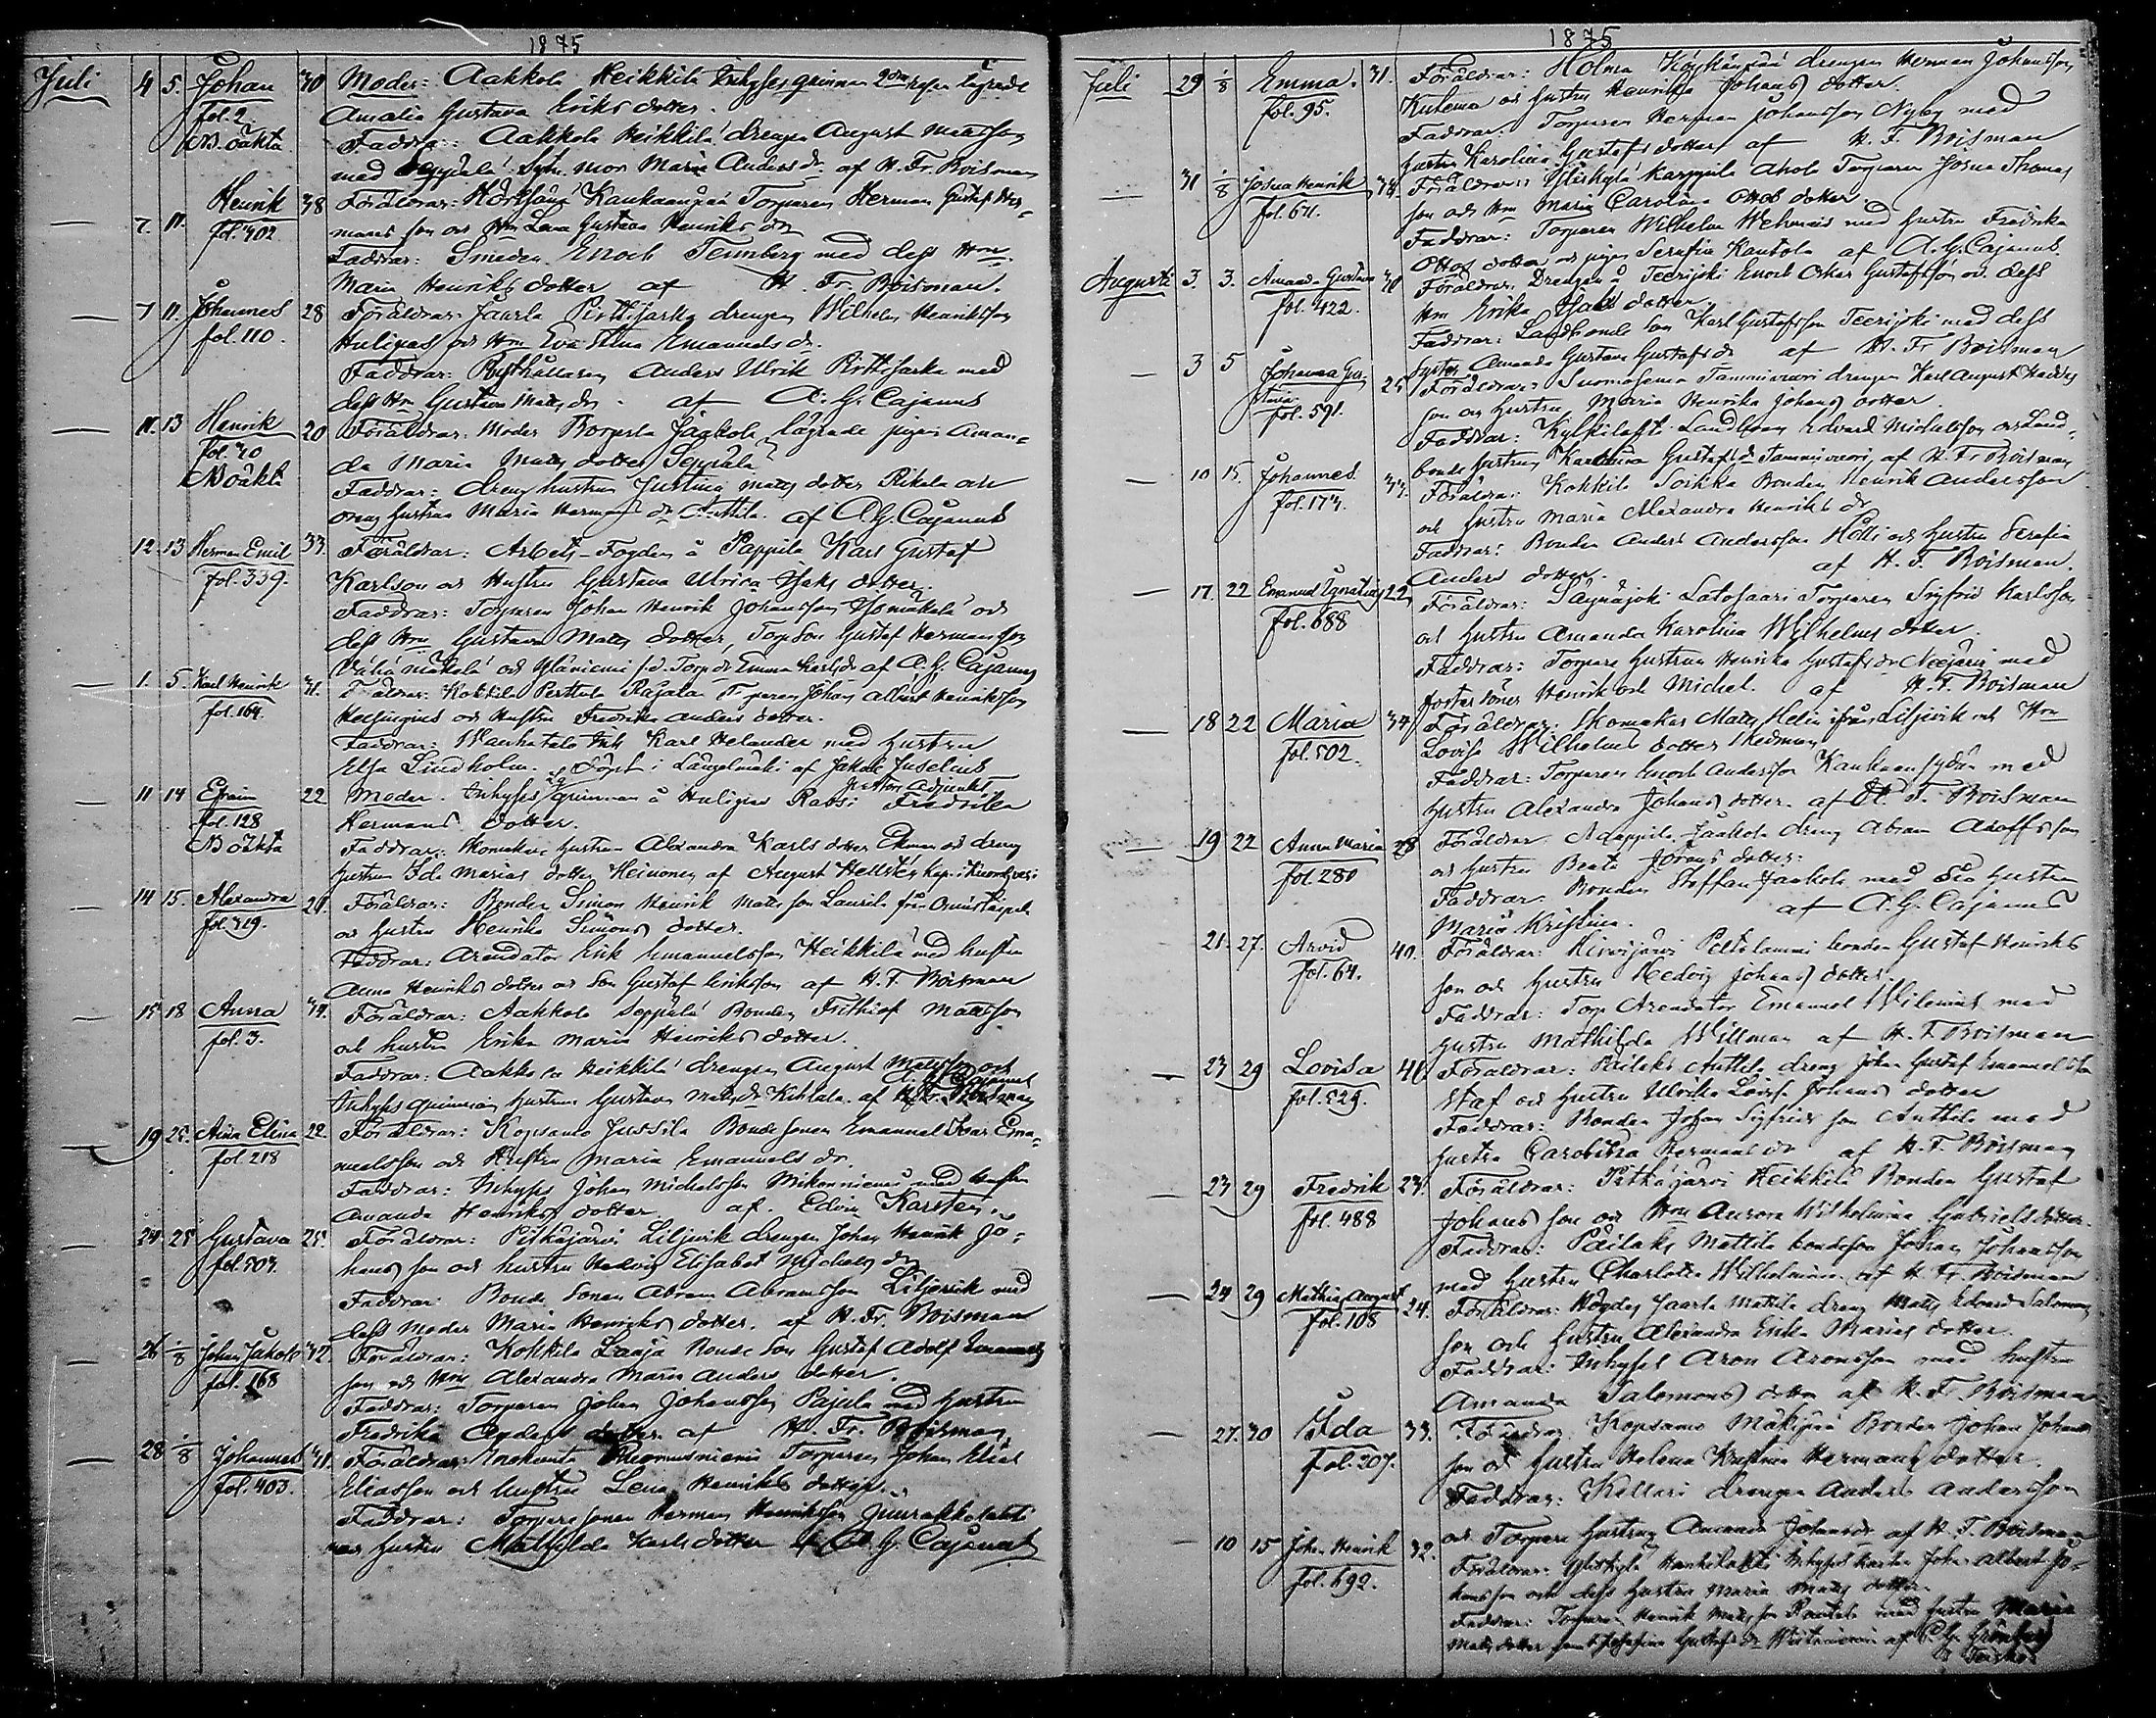 1875
Juli 4 5. Johan 30 Moder: Aakkola Heikkilä Inhyses qvinnan 2dra resan lägrade
fol. 2. Amalia Gustava Eriks dotter.
B. oäkta Faddrar: Aakkola Heikkilä drengen August Mattsson
med Seppälä Sytn. mor Maria Anders dr. af H. Fr. Boisman
— 7. 11. Henrik 38 Föräldrar: Torparen Herman Gustaf Her-
fol. 402 mans son och Hru Lena Gustava Henriks dr
Faddrar: Smeden Enoch Tennberg med dess Hru
Maria Henriks dotter af H. Fr. Boisman.
— 7 11. Johannes 28 Föräldrar: Jaarla Pirttijärfvi drengen Wilhelm Henriksson
fol. 110. Huligas och Hru Eva Stina Emanuels dr.
Faddrar: Rusthållaren Anders Ulrik Pirttijärfvi med
dess Hru Gustava Matts dr. af A. G. Cajanus
— 11. 13 Henrik 20 Föräldrar: Moder Jaakola lägrade pigan Aman-
fol. 70 da Maria Matts dotter Seppälä
B oäkta Faddrar: dreng hustrun Justina Matts dotter Rikala och
dreng hustrun Maria Hermans dr Anttila. af A. G. Cajanus
12. 13 Herman Emil 33. Föräldrar: Arbets-Fogden å Pappila Karl Gustaf
fol. 339. Karlsson och Hustru Gustava Ulrica Isaks dotter.
Faddrar: Torparen Johan Henrik Johansson Isomäkelä och
dess Hru Gustava Matts dotter, Torp. Son Gustaf Hermansson
Vähämäkelä och Torp. dr Emma Karls dr af A. G. Cajanus
— 1. 5 Karl Henrik 31. Föräldrar: Kokkila Perttula Rajala Torparen Johan Albert Henriksson
fol. 164. Helsingius och Hustru Fredrika Anders dotter.
Faddrar: Wanhatalo Inh. Karl Helander med Hustrun
Elsa Lindholm. Döpt i Längelmäki af Jakob Juselius
Pastors Adjunkt.
— 11 14 Efraim 22 Moder. Inhyses qvinnan å Huligas Rassi Fredrika
fol. 128 Hermans dotter.
B oäkta Faddrar: Skomakare hustrun Alexandra Karls dotter Ekman och dreng
hustrun Ida Marias dotter Heinonen af August Hellstén Kap. i Kuorehvesi
— 14 15. Alexandra 29. Föräldrar: Bonden Simon Henrik Matts son Laurila från Onnistaipale
fol. 319. och Hustru Henrika Simons dotter.
Faddrar: Arendator Erik Emanuelsson Heikkilä med hustru
Anna Henriks dotter och Son Gustaf Eriksson af H. F. Boisman
— 15 18 Anna 34. Föräldrar: Aakkola Seppälä Bonden Frithiof Mattsson
fol. 3. och hustru Erika Maria Henriks dotter.
Faddrar: Aakkola Heikkilä drengen August Mattsson och
Inhyses qvinnan hustrun Gustava Matts dr af A. G. Cajanus
— 19 25. Aina Elina 22. Föräldrar: Kopsamo Jussila Bonde Sonen Emanuel Ivar Ema-
fol. 218 nuelsson och Hustru Maria Emanuels dr.
Faddrar: Inhyses Johan Michelsson Mikonniemi med hustru
Amanda Henriks dotter af Edvin Karsten.
— 24 25 Gustava 25. Föräldrar: Pitkäjärvi Liljevik drengen Johan Henrik Jo-
fol. 507. hans son och hustru Hedvig Elisabet Michels dr
Faddrar: Bonde Sonen Abram Abramsson Liljevik med
dess Moder Maria Henriks dotter. af H. Fr. Boisman
— 26 1/8 Johan Jakob 32. Föräldrar: Kokkila Laaja Bonde Son Gustaf Adolf Emanuels
fol. 168 son och Hru Alexandra Maria Anders dotter.
Faddrar: Torparen Johan Johansson Pajula med Hustru
Fredrika Anders dotter af H. Fr. Boisman
— 28 1/8 Johannes 31. Föräldrar: Torparen Johan Elias
fol. 403. Eliasson och hustru Lena Henriks dotter.
Faddrar: Torpare sonen Herman Henriksson
med hustru Mathilda Karls dotter af A. G. Cajanus
1875
Juli 29 1/8 Emma. 31. Föräldrar: Holma drengen Herman Johansson
fol. 95. Kulema och hustru Henrika Johans dotter.
Faddrar: Torparen Herman Johansson Nyby med
hustru Karolina Gustafs dotter af H. F. Boisman
— 31 1/8 Josua Henrik 34 Föräldrar: Yliskylä Karppila Ahola Torparen Josua Thomas
fol. 671. son och Hru Maria Carolina Ottos dotter.
Faddrar: Torparen Wilhelm Wehmas med hustru Fredrika
Ottos dotter och pigan Serafia Kantola af A. G. Cajanus.
Augusti 3. 3. Amanda Gustava 30 Föräldrar: Drengen å Teerijoki Enoch Oskar Gustafsson och dess
fol. 422. Hru Erika Isaks dotter.
Faddrar: Landbonde Son Karl Gustafsson Teerijoki med dess
syster Amanda Gustava Gustafs dr af H. Fr Boisman
— 3 5 Johanna Gus- 25 Föräldrar: Suomasema Tammivuori drengen Karl August Karls
tava son och hustru Maria Henrika Johans dotter.
fol. 591. Faddrar: Landbonden Edvard Michelsson och Land-
bonde hustrun Karolina Gustafs dr Tammivuori, af H. Fr Boisman
— 10 15. Johannes 33. Föräldrar: Kokkila Soikka Bonden Henrik Andersson
fol. 173. och Hustru Maria Alexandra Henriks dr
Faddrar: Bonden Anders Andersson Holli och hustru Serafia
Anders dotter. af H. F. Boisman.
— 17. 22 Emanuel Ignatius 22, Föräldrar: Säynäjoki Latosaari Torparen Sigfrid Karlsson
fol. 688 och hustru Amanda Karolina Wilhelms dotter.
Faddrar: Torpare hustrun Henrika Gustafs dr med
foster söner Henrik och Michel. af H. F. Boisman
— 18 22 Maria 34 Föräldrar: Skomakar Matts Helin ifrån Liljevik och Hru
fol. 502. Lovisa Wilhelms dotter Hedman
Faddrar: Torparen Enoch Andersson med
hustru Alexandra Johans dotter. af H. F. Boisman
— 19 22 Anna Maria 28 Föräldrar: Jaakola dreng Abram Adolfsson
fol. 280 och hustru Beata Jörans dotter:
Faddrar: Bonden Staffan Jaakola med sin Hustru
Maria Kristina. af A. G. Cajanus
21. 27. Arvid 40. Föräldrar: Hirvijärvi Peltolammi bonden Gustaf Henriks
fol. 64. son och hustru Hedvig Johans dotter.
Faddrar: Torp Arendator Emanuel Wilenius med
hustru Mathilda Willman af H. F. Boisman
— 23 29 Lovisa 41. Föräldrar: Päilahti Anttila dreng Johan Gustaf Emanuelsson
fol. 529. Staf och hustru Ulrika Lovisa Johans dotter
Faddrar: Bonden Johan Sigfrids son Anttila med
hustru Carolina Hermans dr af H. F. Boisman
— 23 29 Fredrik 23. Föräldrar: Pitkäjärvi Heikkilä Bonden Gustaf
fol. 488 Johans son och Hru Aurora Wilhelmina Gabriels dotter.
Faddrar: Päilaks Mattila bondeson Johan Johansson
med hustru Charlotta Wilhelmina af H. Fr. Boisman
— 24 29 Mathias August 24. Föräldrar: Jaarla Mattila dreng Matts Edvard Salomons
fol. 108 son och hustru Alexandra Erika Marias dotter.
Faddrar: Inhyses Aron Aronsson med hustru
Amanda Salomons dotter af H. Fr Boisman
— 27. 30 Ida 33. Föräldrar: Kopsamo Mäkipää Bonden Johan Johans
fol. 207. son och hustru Helena Kristina Hermans dotter.
Faddrar: Kellari drengen Anders Andersson
och Torpare hustrun Amanda Johans dr af H. F. Boisman
— 10 15 Johan Henrik 32. Föräldrar: Yliskylä Inhyses karlen Johan Albert Jo-
fol. 692. hansson och dess hustru Maria Matts dotter.
Faddrar: Torparen Henrik Matts son Rantala med hustru Maria
Matts dotter samt Josefina Gustafs dr af